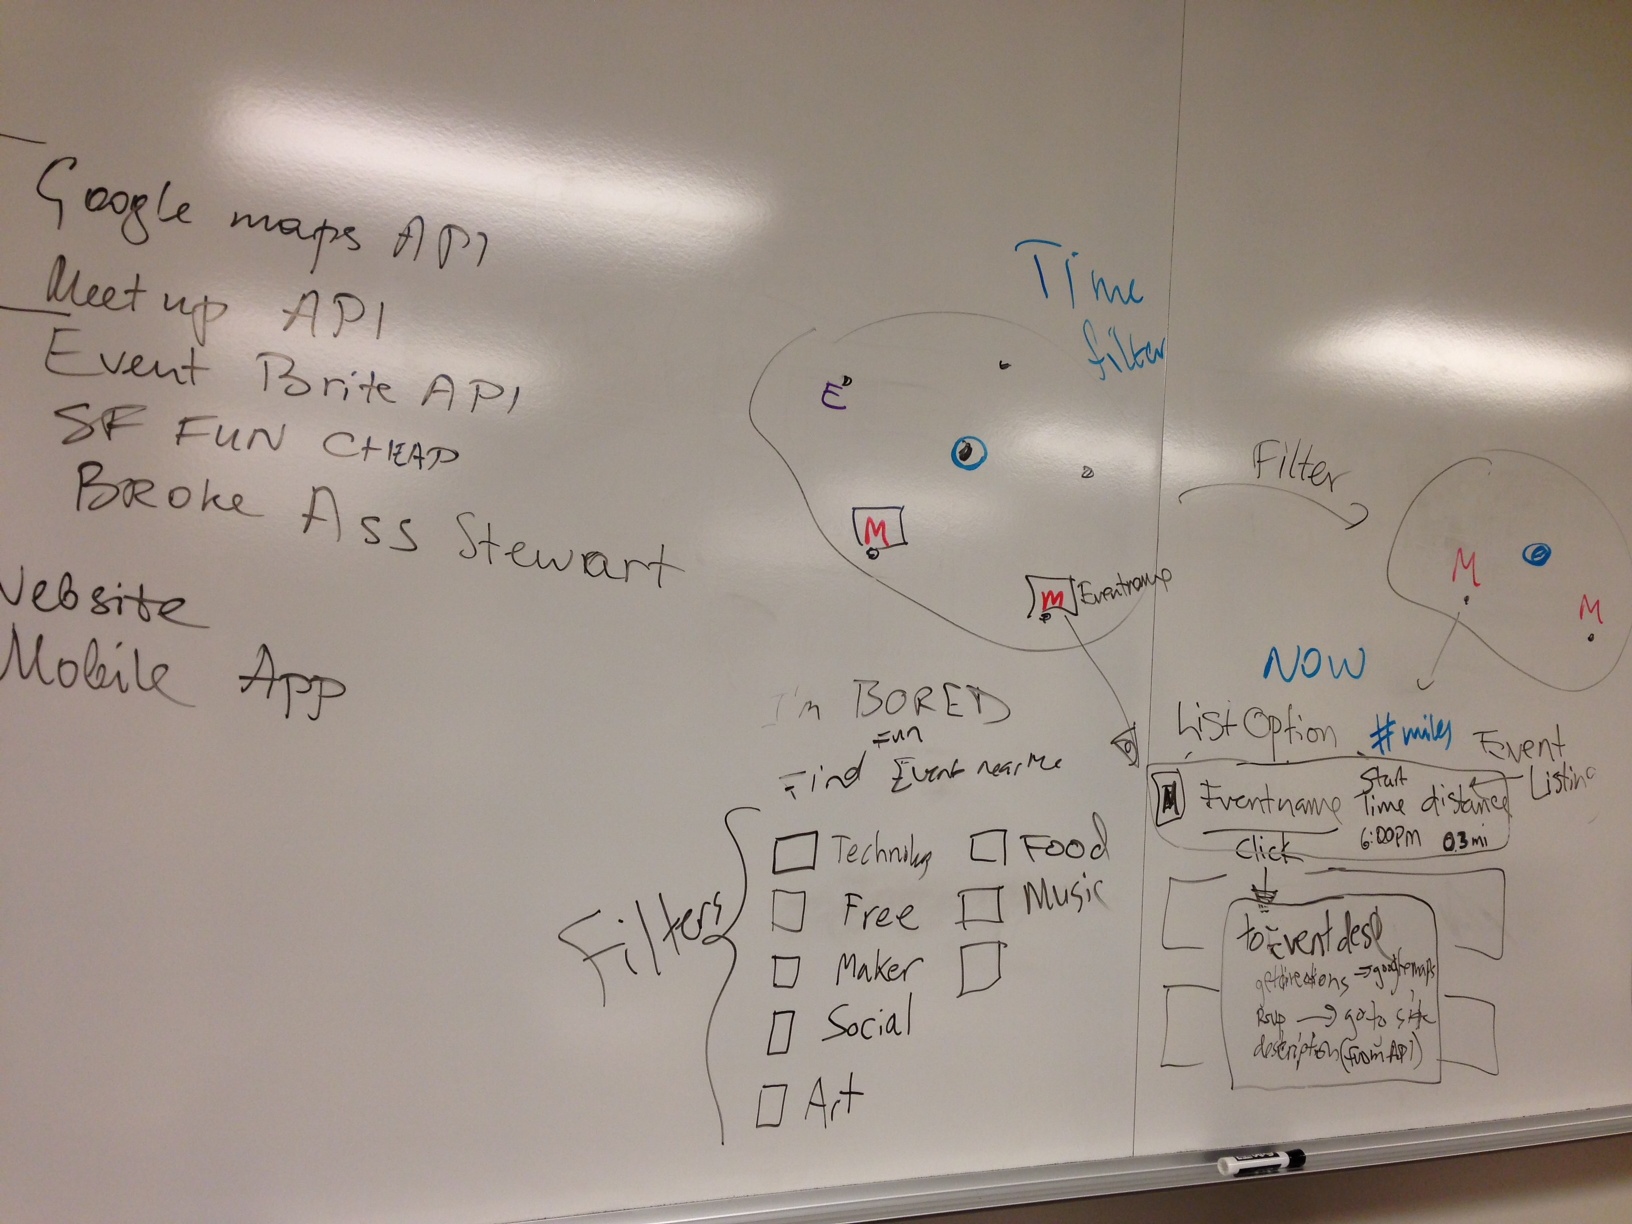 Google maps API
Meet up API
Event Brite API
SF FUN CHEAP
BROKE Ass Stewart
Website
Mobile App
Time
filter
E
M
M
Filter
M
M
NOW
I'm BORED
Fun
Find Event near me
Filters
Technology
Free
Maker
Social
Art
Food
Music
List Option
#miles
Event
Listing
M
Event name
Start
Time
6:00pm
distance
0.3mi
Click
to Event desc
get directions → google maps
Rsvp → go to site
description (from API)